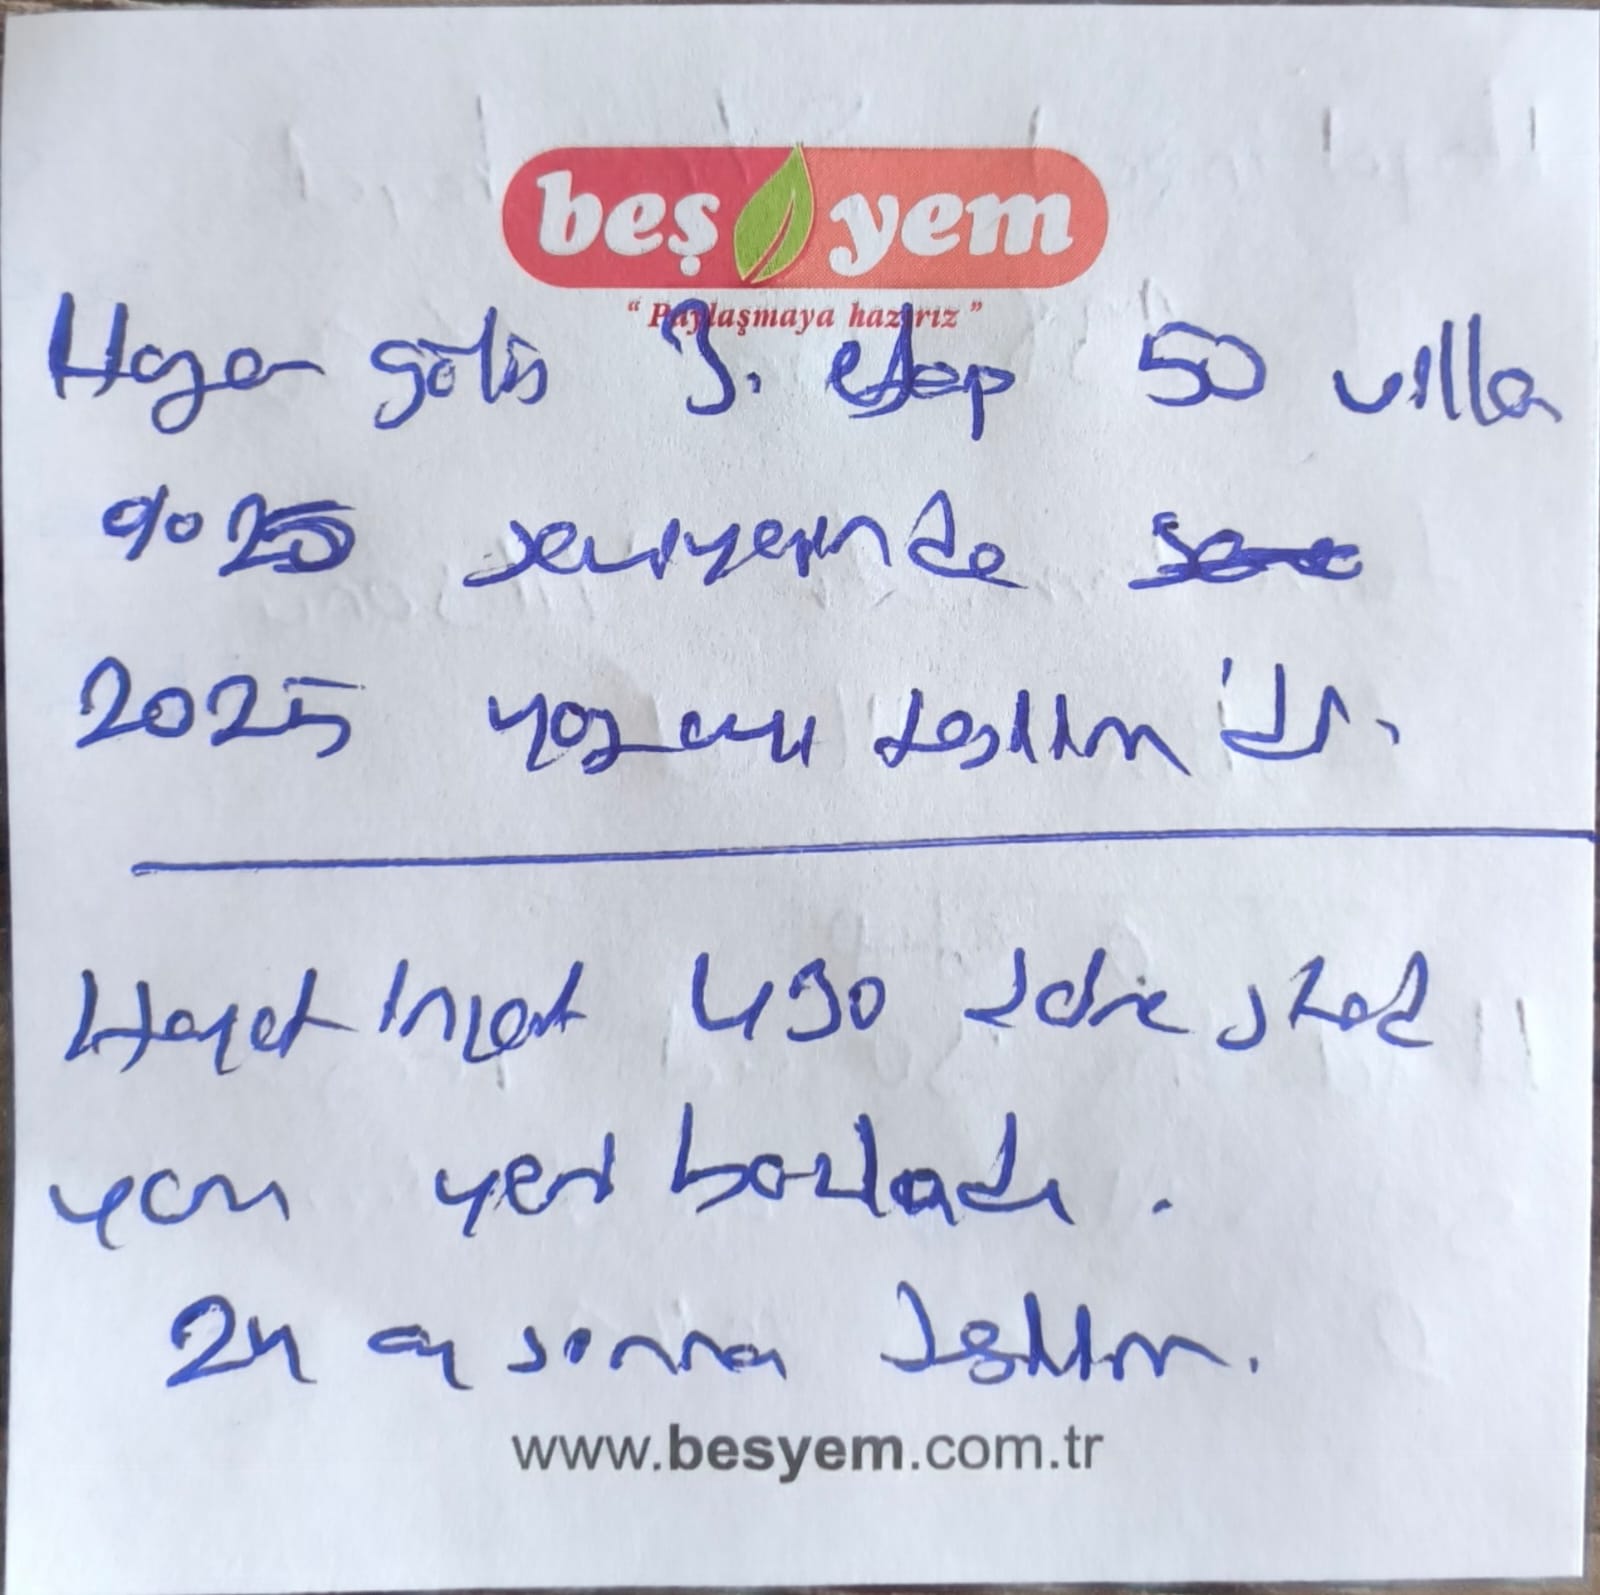 beş yem
“Paylaşmaya hazırız”
Hazar göliş 3. etap 50 villa
%25 seviyesinde
2025 yoz ayı teslim'dir.
Hayat İnşaat 430 daire
yanı yeri başladı.
24 ay sonra teslim.
www.besyem.com.tr